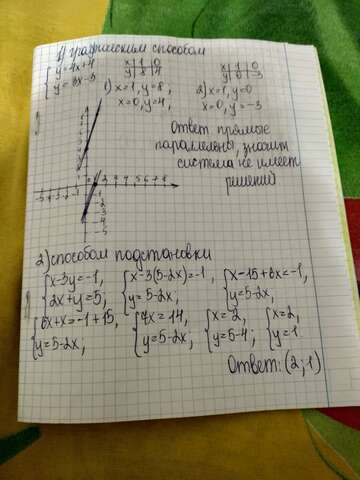 1) графическим способом
{ y=4x+4
{ y=3x-3
x | 1 | 0
y | 8 | 4
x | 1 | 0
y | 0 | -3
1) x=1, y=8;
x=0, y=4,
2) x=1, y=0
x=0, y=-3
Ответ прямые
параллелны, значит
система не имеет
решений
-5 -4 -3 -2 -1
1 2 3 4 5 6 7 8
-1
-2
-3
-4
-5
2) способом подстановки
{ x-3y=-1,
{ 2x+y=5;
{ x-3(5-2x)=-1,
{ y=5-2x,
{ x-15+6x=-1,
{ y=5-2x,
{ 6x+x=-1+15,
{ y=5-2x,
{ 7x=14,
{ y=5-2x;
{ x=2,
{ y=5-4;
{ x=2,
{ y=1.
Ответ: (2;1)